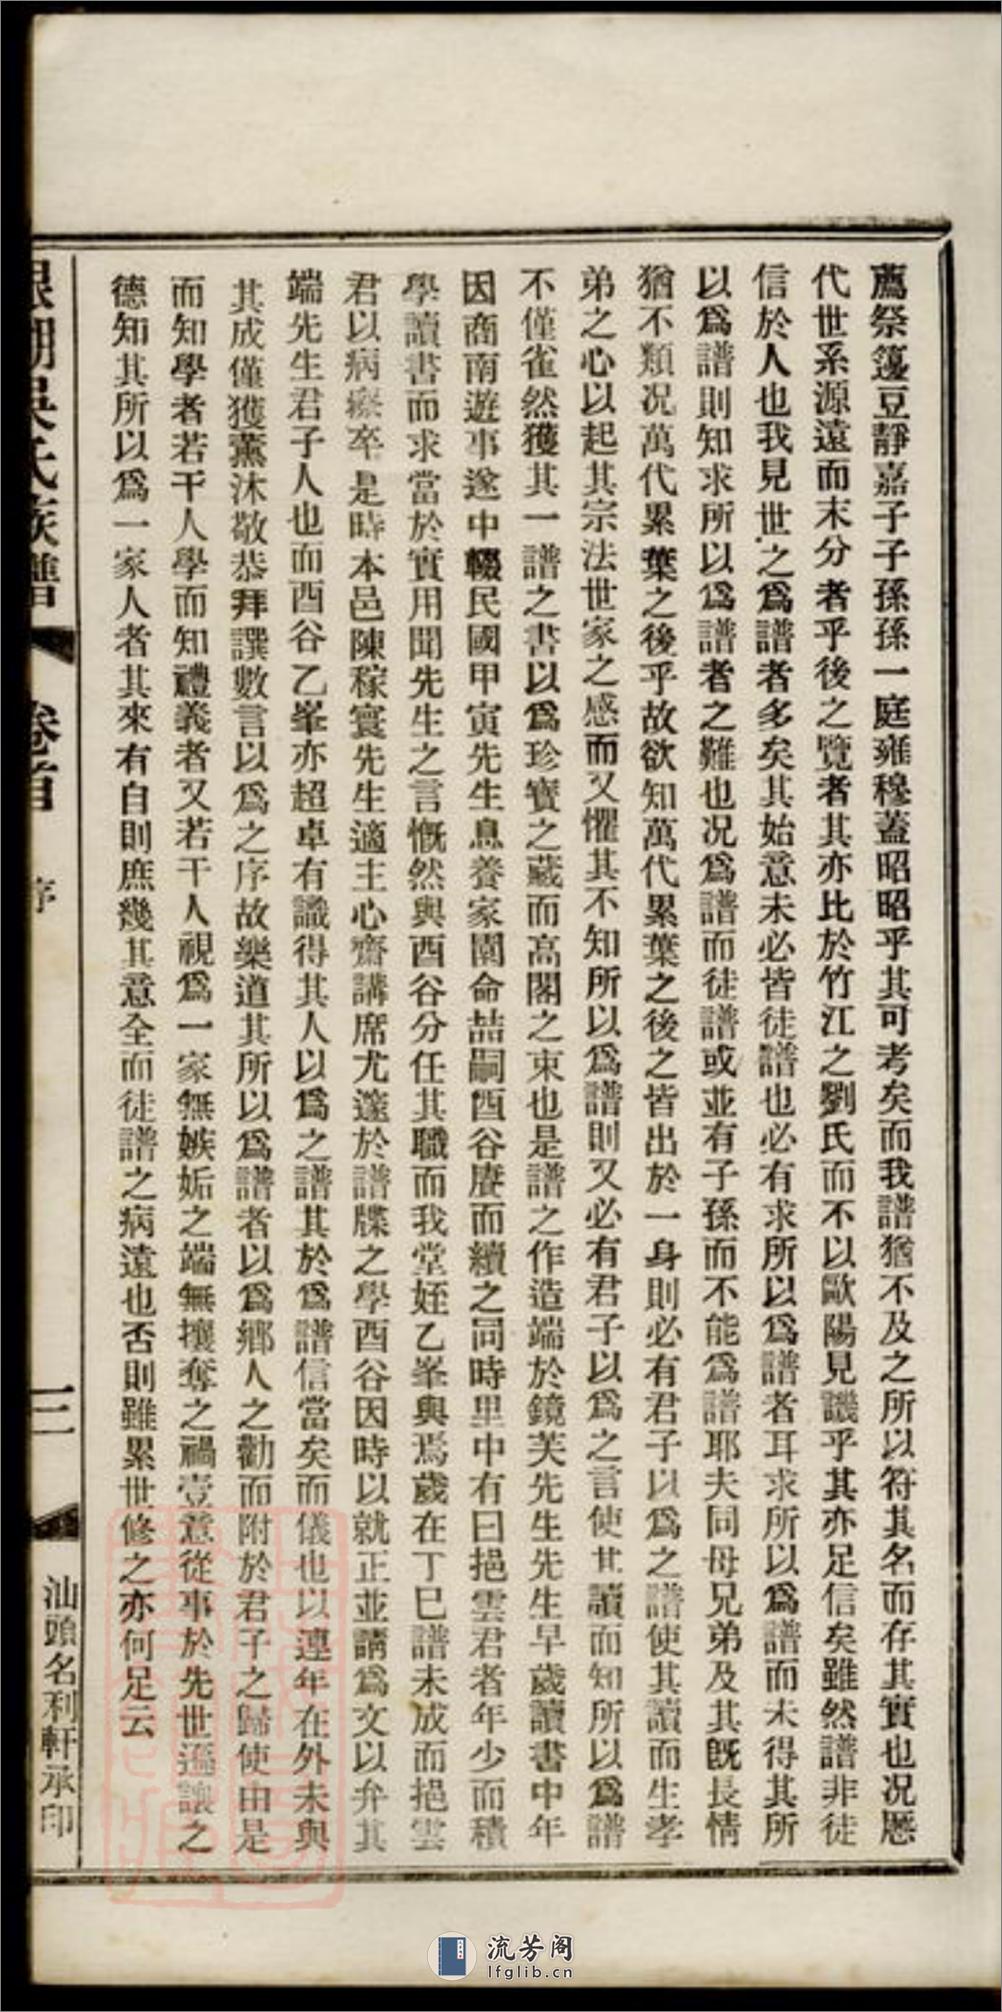 薦祭籩豆靜嘉子子孫孫一庭雍穆蓋昭昭乎其可考矣而我譜猶不及之所以符其名而存其實也况歷
代世系源遠而末分者乎後之覽者其亦比於竹江之劉氏而不以歐陽見譏乎其亦足信矣雖然譜非徒
信於人也我見世之爲譜者多矣其始意未必皆徒譜也必有求所以爲譜者耳求所以爲譜而未得其所
以爲譜則知求所以爲譜者之難也况爲譜而徒譜或並有子孫而不能爲譜耶夫同母兄弟及其既長情
猶不類况萬代累葉之後乎故欲知萬代累葉之後之皆出於一身則必有君子以爲之譜使其讀而生孝
弟之心以起其宗法世家之感而又懼其不知所以爲譜則又必有君子以爲之言使其讀而知所以爲譜
不僅雀然獲其一譜之書以爲珍寶之藏而高閣之束也是譜之作造端於鏡芙先生先生早歲讀書中年
因商南遊事遂中輟民國甲寅先生息養家園命喆嗣酉谷賡而續之同時里中有曰挹雲君者年少而積
學讀書而求當於實用聞先生之言慨然與酉谷分任其職而我堂姪乙峯與焉歲在丁巳譜未成而挹雲
君以病瘵卒是時本邑陳稼寰先生適主心齋講席尤邃於譜牒之學酉谷因時以就正並請爲文以弁其
端先生君子人也而酉谷乙峯亦超卓有識得其人以爲之譜其於爲譜信當矣而儀也以連年在外未與
其成僅獲薰沐敬恭拜譔數言以爲之序故樂道其所以爲譜者以爲鄉人之勸而附於君子之歸使由是
而知學者若干人學而知禮義者又若干人視爲一家無嫉妬之端無攘奪之禍壹意從事於先世遜讓之
德知其所以爲一家人者其來有自則庶幾其意全而徒譜之病遠也否則雖累世修之亦何足云
湖吳氏族譜 卷首 序 三 汕頭名利軒承印
流芳阁
lfglib.cn